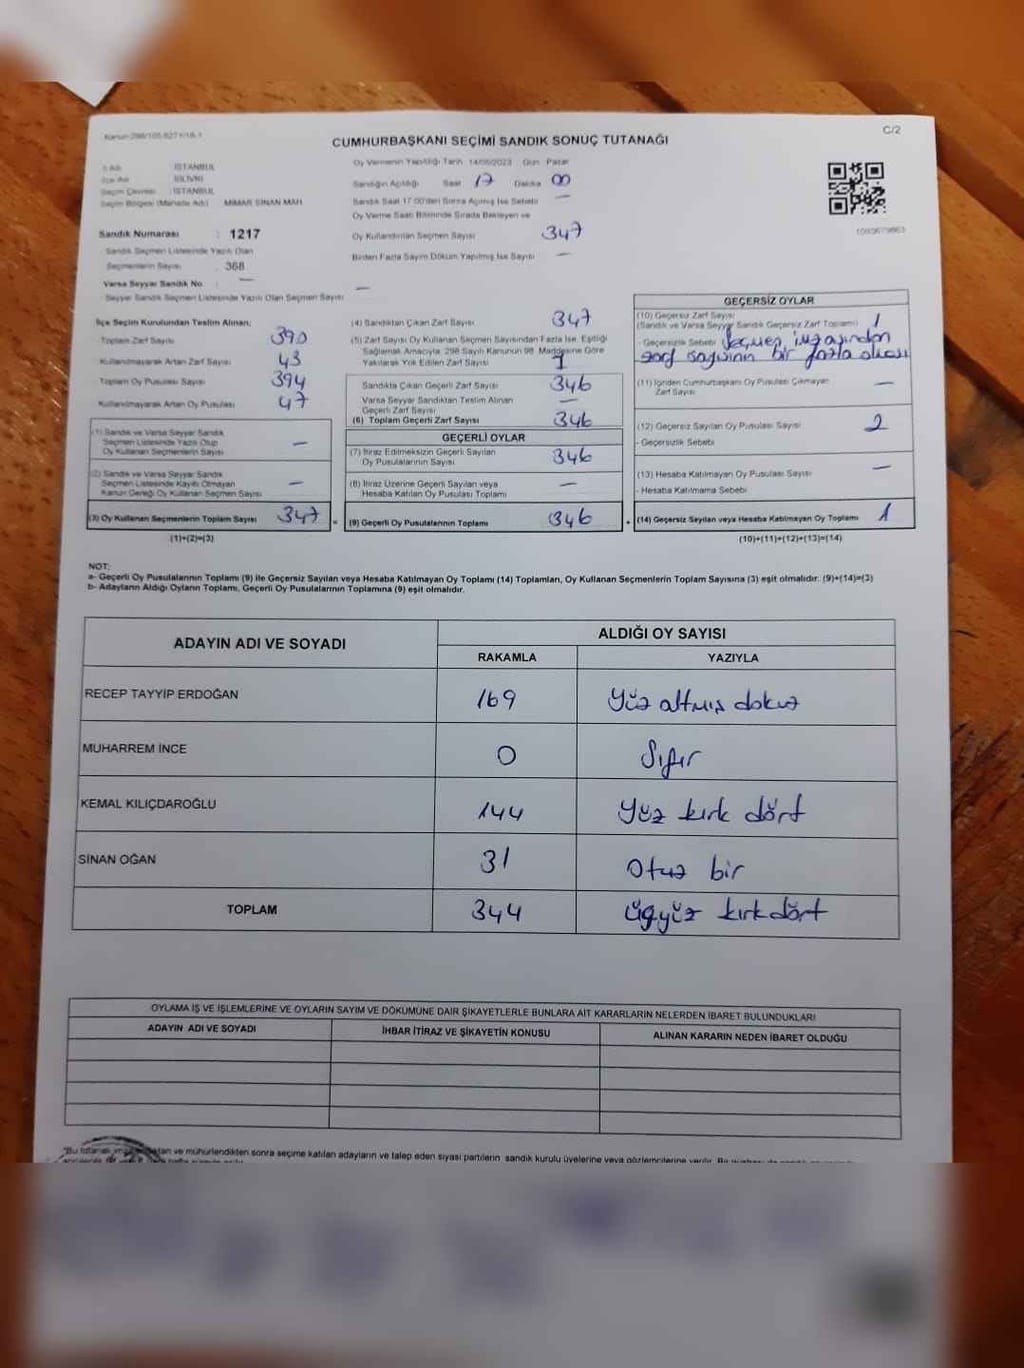 Kanun-298/105.827/1/18-1
C/2
CUMHURBAŞKANI SEÇİMİ SANDIK SONUÇ TUTANAĞI
İl Adı : İSTANBUL
İlçe Adı : SİLİVRİ
Seçim Çevresi : İSTANBUL
Seçim Bölgesi (Mahalle Adı) : MİMAR SİNAN MAH.
Sandık Numarası : 1217
Sandık Seçmen Listesinde Yazılı Olan
Seçmenlerin Sayısı : 368
Varsa Seyyar Sandık No : —
Seyyar Sandık Seçmen Listesinde Yazılı Olan Seçmen Sayısı : —
Oy Vermenin Yapıldığı Tarih 14/05/2023 Gün Pazar
Sandığın Açıldığı Saat 17 Dakika 00
Sandık Saat 17.00'den Sonra Açılmış İse Sebebi —
Oy Verme Saati Bitiminde Sırada Bekleyen ve
Oy Kullandırılan Seçmen Sayısı 347
Birden Fazla Sayım Döküm Yapılmış İse Sayısı —
İlçe Seçim Kurulundan Teslim Alınan;
Toplam Zarf Sayısı 390
Kullanılmayarak Artan Zarf Sayısı 43
Toplam Oy Pusulası Sayısı 394
Kullanılmayarak Artan Oy Pusulası 47
(1) Sandık ve Varsa Seyyar Sandık
Seçmen Listesinde Yazılı Olup
Oy Kullanan Seçmenlerin Sayısı —
(2) Sandık ve Varsa Seyyar Sandık
Seçmen Listesinde Kayıtlı Olmayan
Kanun Gereği Oy Kullanan Seçmen Sayısı —
(3) Oy Kullanan Seçmenlerin Toplam Sayısı 347
(1)+(2)=(3)
(4) Sandıktan Çıkan Zarf Sayısı 347
(5) Zarf Sayısı Oy Kullanan Seçmen Sayısından Fazla İse, Eşitliği
Sağlamak Amacıyla, 298 Sayılı Kanunun 98. Maddesine Göre
Yakılarak Yok Edilen Zarf Sayısı 1
Sandıkta Çıkan Geçerli Zarf Sayısı 346
Varsa Seyyar Sandıktan Teslim Alınan
Geçerli Zarf Sayısı —
(6) Toplam Geçerli Zarf Sayısı 346
GEÇERLİ OYLAR
(7) İtiraz Edilmeksizin Geçerli Sayılan
Oy Pusulalarının Sayısı 346
(8) İtiraz Üzerine Geçerli Sayılan veya
Hesaba Katılan Oy Pusulası Toplamı —
(9) Geçerli Oy Pusulalarının Toplamı 346
GEÇERSİZ OYLAR
(10) Geçersiz Zarf Sayısı
(Sandık ve Varsa Seyyar Sandık Geçersiz Zarf Toplamı) 1
- Geçersizlik Sebebi Seçmen imzasından
zarf sayısının bir fazla olması
(11) İçinden Cumhurbaşkanı Oy Pusulası Çıkmayan
Zarf Sayısı —
(12) Geçersiz Sayılan Oy Pusulası Sayısı 2
- Geçersizlik Sebebi
(13) Hesaba Katılmayan Oy Pusulası Sayısı —
- Hesaba Katılmama Sebebi
(14) Geçersiz Sayılan veya Hesaba Katılmayan Oy Toplamı 1
(10)+(11)+(12)+(13)=(14)
NOT:
a- Geçerli Oy Pusulalarının Toplamı (9) ile Geçersiz Sayılan veya Hesaba Katılmayan Oy Toplamı (14) Toplamları, Oy Kullanan Seçmenlerin Toplam Sayısına (3) eşit olmalıdır. (9)+(14)=(3)
b- Adayların Aldığı Oyların Toplamı, Geçerli Oy Pusulalarının Toplamına (9) eşit olmalıdır.
ADAYIN ADI VE SOYADI
ALDIĞI OY SAYISI
RAKAMLA YAZIYLA
RECEP TAYYİP ERDOĞAN 169 Yüz altmış dokuz
MUHARREM İNCE 0 Sıfır
KEMAL KILIÇDAROĞLU 144 Yüz kırk dört
SİNAN OĞAN 31 Otuz bir
TOPLAM 344 üçyüz kırkdört
OYLAMA İŞ VE İŞLEMLERİNE VE OYLARIN SAYIM VE DÖKÜMÜNE DAİR ŞİKAYETLERLE BUNLARA AİT KARARLARIN NELERDEN İBARET BULUNDUKLARI
ADAYIN ADI VE SOYADI İHBAR İTİRAZ VE ŞİKAYETİN KONUSU ALINAN KARARIN NEDEN İBARET OLDUĞU
ve mühürlendikten sonra seçime katılan adayların ve talep eden siyasi partilerin sandık kurulu üyelerine veya gözlemcilerine verilir.